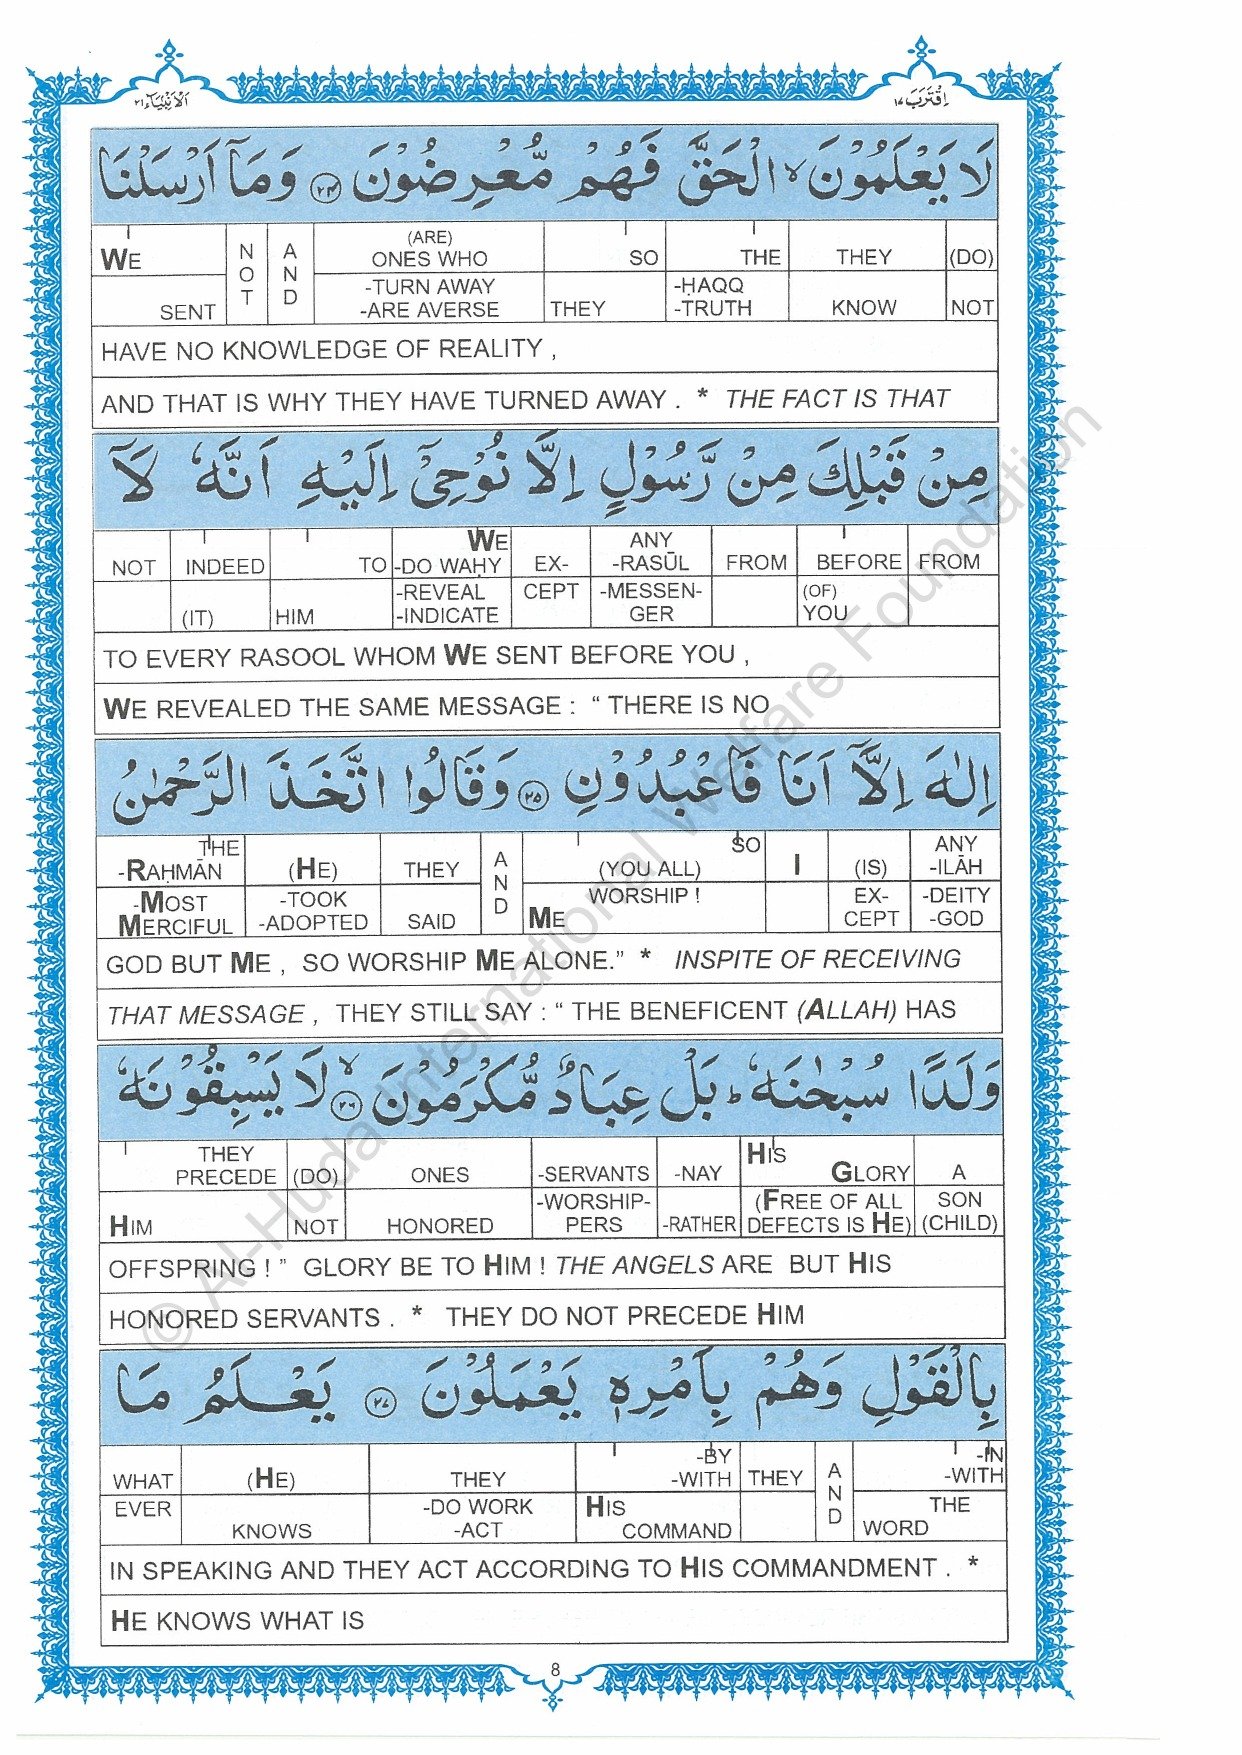 الانبیآء ٢١
اِقْتَرَبَ ١٧
لَا يَعْلَمُوْنَ ۙ الْحَقَّ فَهُمْ مُّعْرِضُوْنَ ٢٤ وَمَآ اَرْسَلْنَا
WE | N O T | A N D | (ARE) ONES WHO | SO | THE | THEY | (DO)
SENT | -TURN AWAY -ARE AVERSE | THEY | -ḤAQQ -TRUTH | KNOW | NOT
HAVE NO KNOWLEDGE OF REALITY ,
AND THAT IS WHY THEY HAVE TURNED AWAY . * THE FACT IS THAT
مِنْ قَبْلِكَ مِنْ رَّسُوْلٍ اِلَّا نُوْحِيْٓ اِلَيْهِ اَنَّهٗ لَآ
NOT | INDEED | TO | WE -DO WAḤY | EX- | ANY -RASŪL | FROM | BEFORE | FROM
(IT) | HIM | -REVEAL -INDICATE | CEPT | -MESSEN- GER | (OF) YOU
TO EVERY RASOOL WHOM WE SENT BEFORE YOU ,
WE REVEALED THE SAME MESSAGE : “ THERE IS NO
اِلٰهَ اِلَّآ اَنَا فَاعْبُدُوْنِ ٢٥ وَقَالُوا اتَّخَذَ الرَّحْمٰنُ
THE -RAḤMĀN | (HE) | THEY | A N D | SO (YOU ALL) | I | (IS) | ANY -ILĀH
-MOST MERCIFUL | -TOOK -ADOPTED | SAID | WORSHIP ! ME | EX- CEPT | -DEITY -GOD
GOD BUT ME , SO WORSHIP ME ALONE.” * INSPITE OF RECEIVING
THAT MESSAGE , THEY STILL SAY : “ THE BENEFICENT (ALLAH) HAS
وَلَدًا سُبْحٰنَهٗ ؕ بَلْ عِبَادٌ مُّكْرَمُوْنَ ۙ ٢٦ لَا يَسْبِقُوْنَهٗ
THEY PRECEDE | (DO) | ONES | -SERVANTS | -NAY | HIS GLORY | A
HIM | NOT | HONORED | -WORSHIP- PERS | -RATHER | (FREE OF ALL DEFECTS IS HE) | SON (CHILD)
OFFSPRING ! ” GLORY BE TO HIM ! THE ANGELS ARE BUT HIS
HONORED SERVANTS . * THEY DO NOT PRECEDE HIM
بِالْقَوْلِ وَهُمْ بِاَمْرِهٖ يَعْمَلُوْنَ ٢٧ يَعْلَمُ مَا
WHAT | (HE) | THEY | -BY -WITH | THEY | A N D | -IN -WITH
EVER | KNOWS | -DO WORK -ACT | HIS COMMAND | THE WORD
IN SPEAKING AND THEY ACT ACCORDING TO HIS COMMANDMENT . *
HE KNOWS WHAT IS
8
© Al-Huda International Welfare Foundation